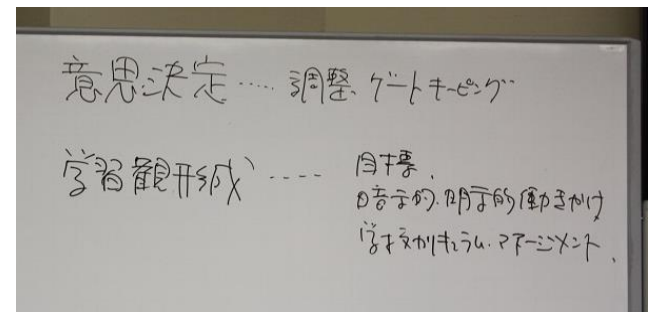 意思決定‥‥調整、ゲートキーピング
学習観形成‥‥目標、
暗示的、明示的働きかけ
学校カリキュラム・マネージメント、